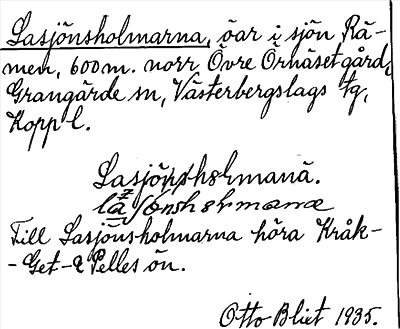 Lasjönsholmarna, öar i sjön Rä-
men, 600 m. norr Övre Örnäset gård,
Grangärde sn, Västerbergslags tg,
Kopp l.
Lasjönsholmanä.
Till Lasjönsholmarna höra Kråk-
- Get- & Pelles ön.
Otto Blixt 1935.